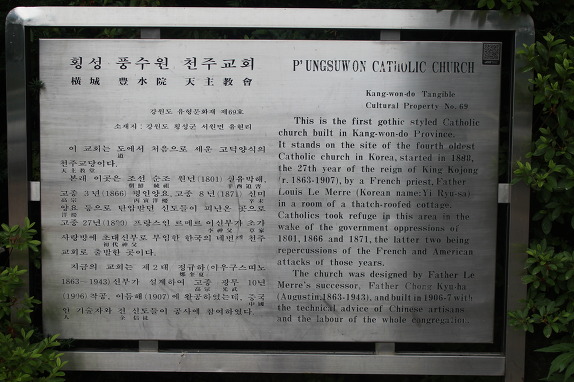 횡성 풍수원 천주교회
橫城 豊水院 天主教會
강원도 유형문화재 제69호
소재지 : 강원도 횡성군 서원면 유현리
이 교회는 도에서 처음으로 세운 고딕양식의
道
천주교당이다.
天主教堂
본래 이곳은 조선 순조 원년(1801) 신유박해,
고종 3년(1866) 병인양요 고종 8년(1871) 신미
양요 등으로 탄압받던 신도들이 피난온 곳으로
고종 27년 프랑스인 르메르 이신부가 초가
사랑방에 초대신부로 부임한 한국의 네번째 천주
교회로 출발한 곳이다.
지금의 교회는 제2대 정규하(아우구스띠노
1863-1943)신부가 설계하여 고종 광무 10년
착공, 이듬해(1907)에 완공하였는데, 중국
中國
인 기술자와 전 신도들이 공사에 참여하였다.
P'UNGSUWON CATHOLIC CHURCH
Kang-won-do Tangible
Cultural Property No. 69
This is the first gothic styled Catholic
church built in Kang-won-do Province.
It stands on the site of the fourth oldest
Catholic church in Korea, started in 1888,
the 27th year of the reign of King Kojong
(r.1863-1907), by a French priest, Father
Louis Le Merre (Korean name: Yi Ryu-sa)
in a room of a thatch-roofed cottage.
Catholics took refuge in this area in the
wake of the government oppressions of
1801, 1866 and 1871, the latter two being
repercussions of the French and American
attacks of those years.
The church was designed by Father Le
Merre's successor, Father Chong Kyu-ha
(Augustin,1863-1943), and built in 1906-7 with
the technical advice of Chinese artisans
and the labour of the whole congregation.